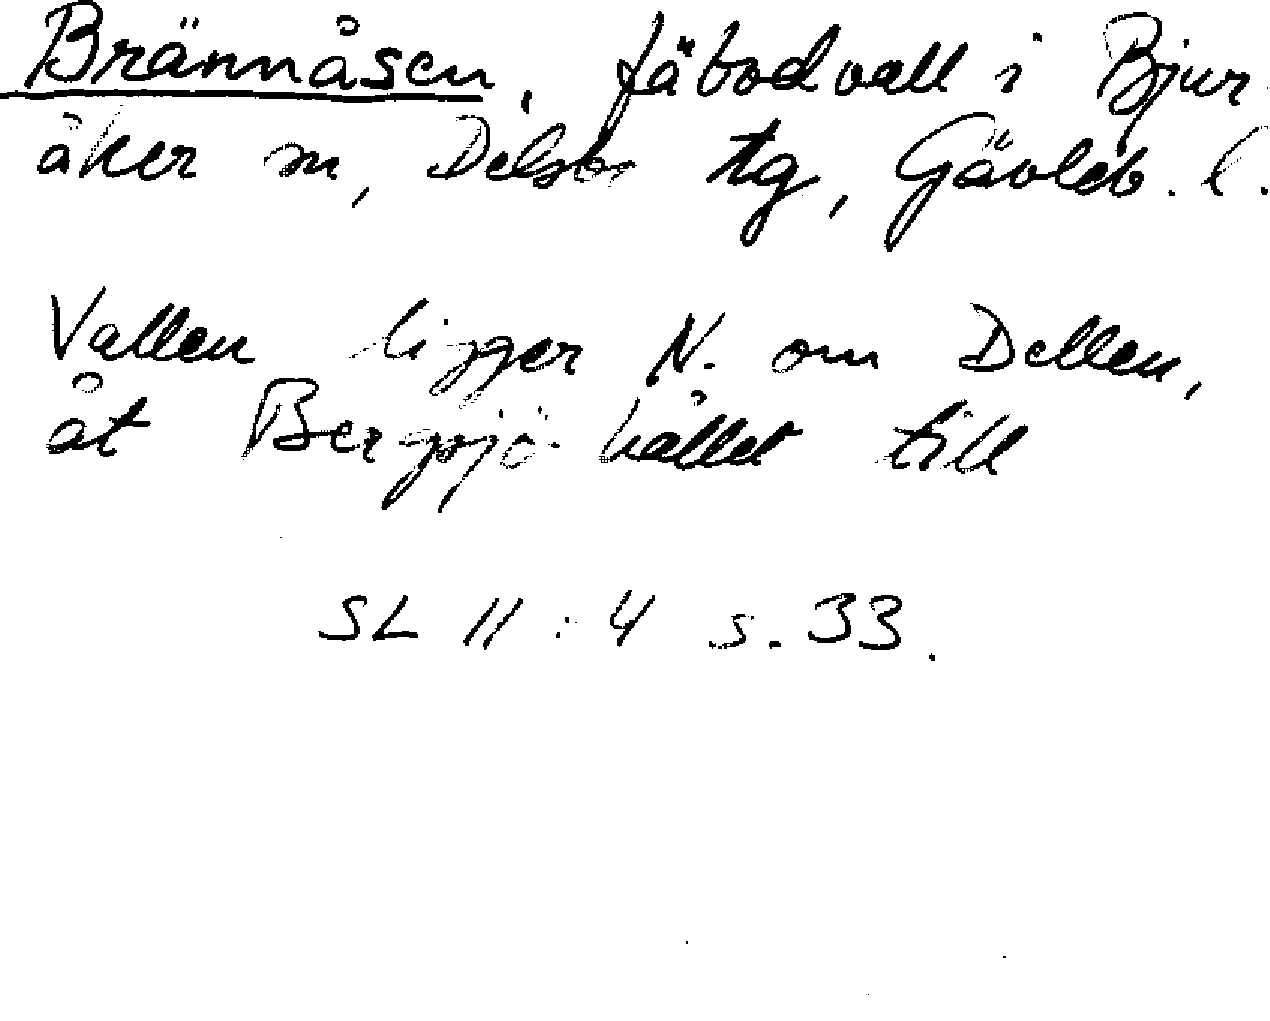 Brännåsen, fäbodvall i Bjur-
åker sn, Delsbo tg, Gävleb. l.
Vallen ligger N. om Dellen,
åt Bergsjö-hållet till
SL 11:4 s. 33.